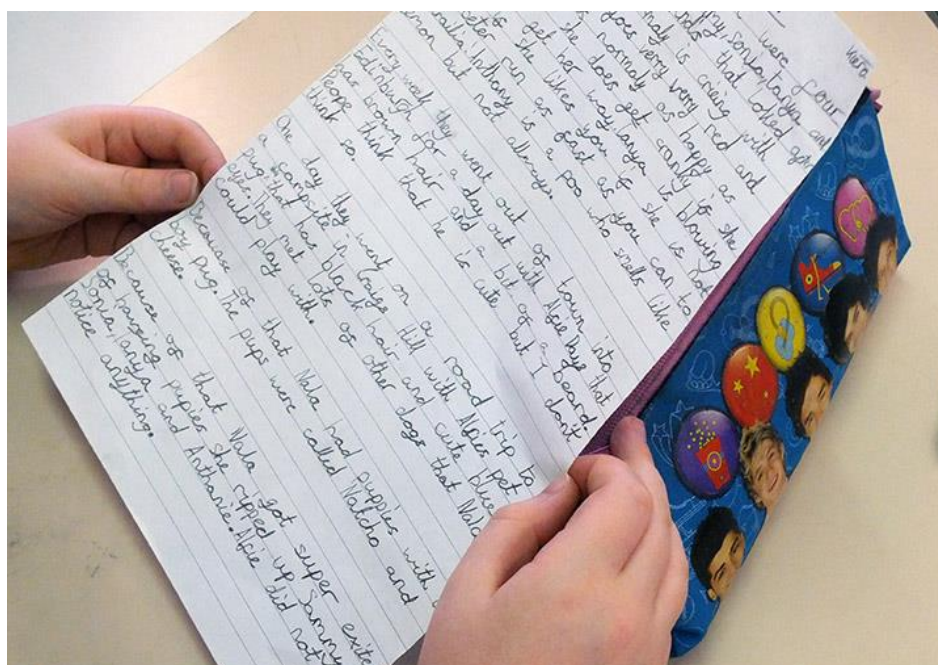 were four
my, Sonia, tanya and
that loked
is crieing with
goes verry red and
normaly as happy as she
she does get cranky if she
get her way. tanya is blowing
she likes you if she is Not
run as fast as you can to
Anthany is a poo who smells like
but not allways.
Every week they went out of town into
Edinburgh for a day out with Alfie hays that
gas brown hair and a bit of a beard.
People think that he is cute but I dont
think so.
On day they went on a road trip to
a campsite in Craigs Hill with Alfies pet
pug, that has black hair and cute blue
eyes, they met lots of other dogs that Nala
could play with.
Because of that Nala had puppies with
boy pug. The pups were called Natcho and
Cheese.
Because of that Nala got super exite
of hanving pupies she ripped up Sammy
Sonia, tanya and Anthanie. Alfie did not
notice anything.